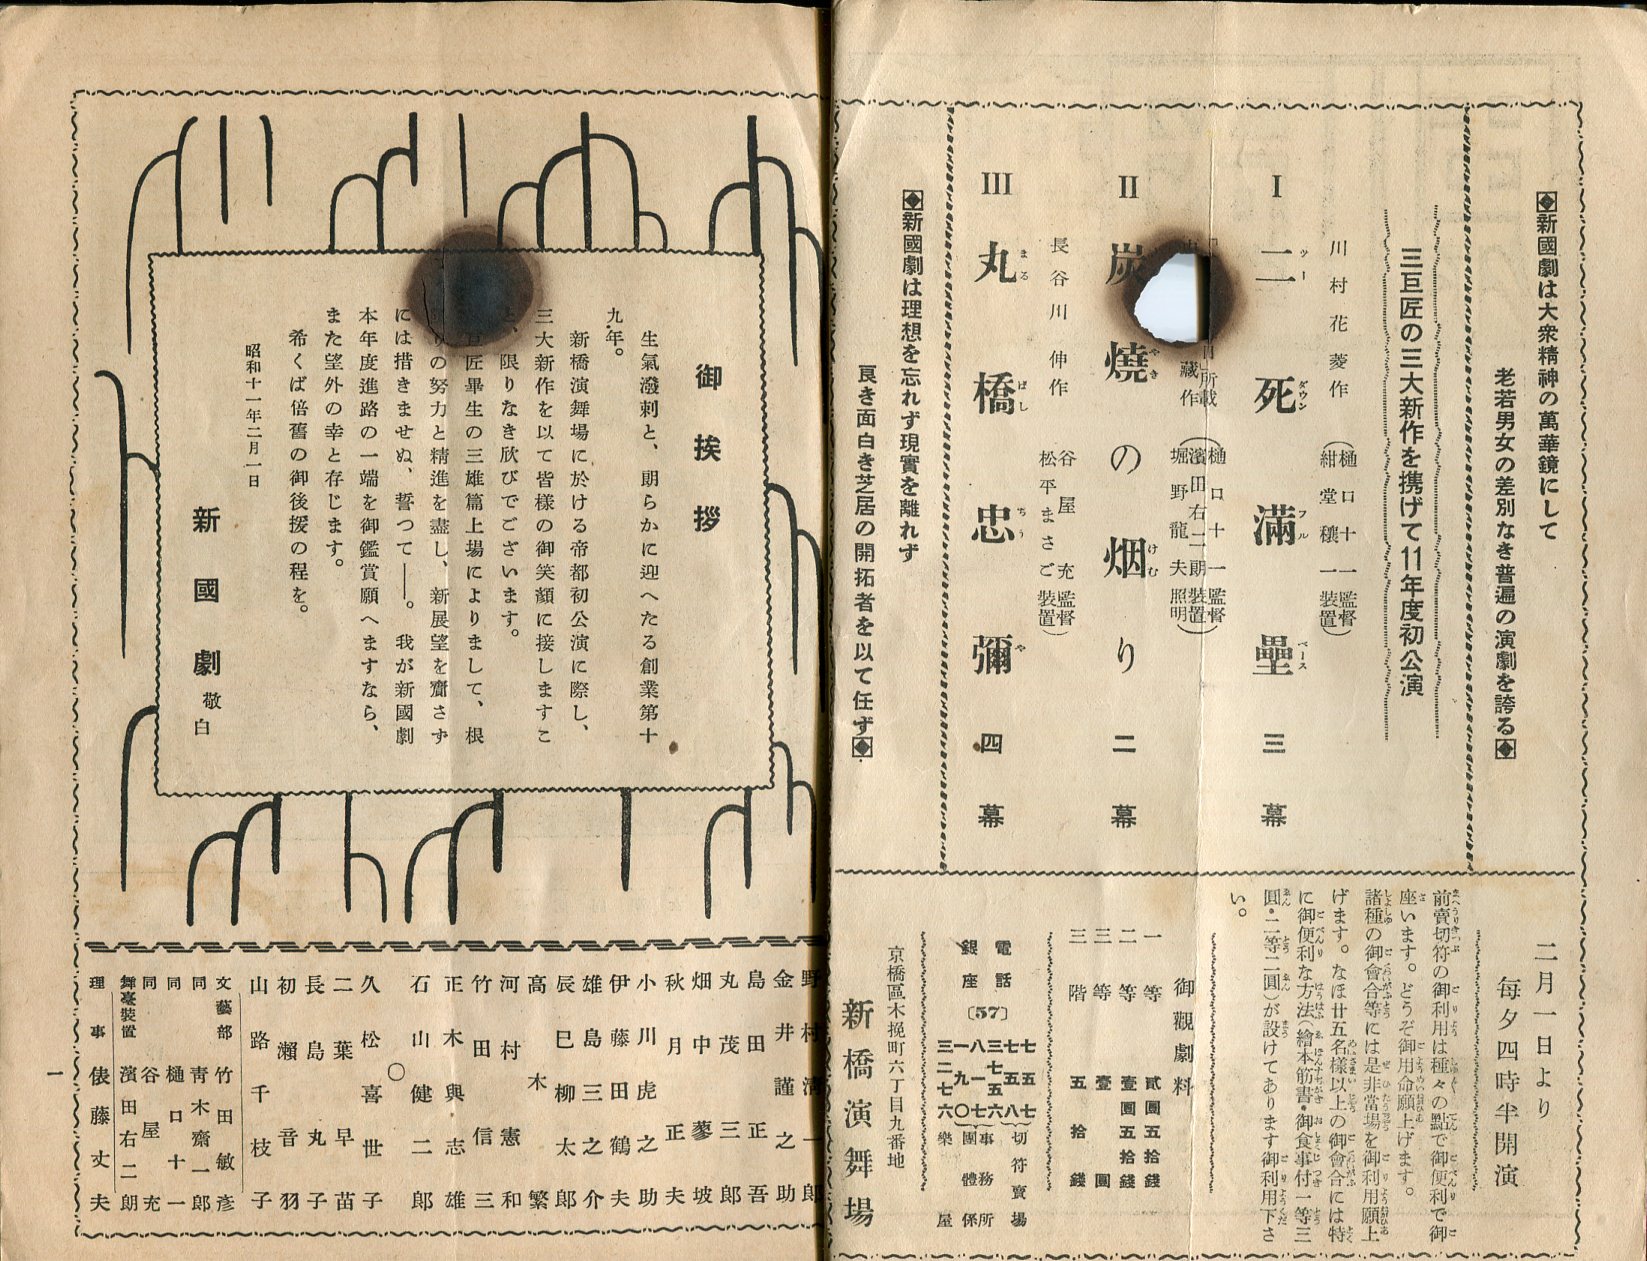 ◆新國劇は大衆精神の萬華鏡にして
老若男女の差別なき普遍の演劇を誇る◆
三巨匠の三大新作を携げて11年度初公演
川村花菱作
(樋口十一監督
紺堂穰一裝置)
I 二死滿壘 三幕
ツーダウンフルベース
所載
藏作
(樋口十一監督
濱田右二朗裝置
堀野龍夫照明)
II 炭燒の烟り 二幕
やき けむ
長谷川伸作
(谷屋充監督
松平まさご裝置)
III 丸橋忠彌 四幕
まるばしちうや
◆新國劇は理想を忘れず現實を離れず
良き面白き芝居の開拓者を以て任ず◆
二月一日より
每夕四時半開演
前賣切符の御利用は種々の點で御便利で御
座います。どうぞ御用命願上げます。
諸種の御會合等には是非當場を御利用願上
げます。なほ廿五名樣以上の御會合には特
に御便利な方法(繪本筋書・御食事付一等三
圓・二等二圓)が設けてあります御利用下さ
い。
御觀劇料
一等 貳圓五拾錢
二等 壹圓五拾錢
三等 壹圓
三階 五拾錢
電話
銀座
〔57〕
切符賣場
事務所
團體係
樂屋
京橋區木挽町六丁目九番地
新橋演舞場
御挨拶
生氣潑剌と、朗らかに迎へたる創業第十
九年。
新橋演舞場に於ける帝都初公演に際し、
三大新作を以て皆樣の御笑顏に接しますこ
と、限りなき欣びでございます。
巨匠畢生の三雄篇上場によりまして、根
りの努力と精進を盡し、新展望を齎さず
には措きませぬ、誓つて――。我が新國劇
本年度進路の一端を御鑑賞願へますなら、
また望外の幸と存じます。
希くば倍舊の御後援の程を。
昭和十一年二月一日
新國劇
敬白
野村淸一郎
金井謹之助
島田正吾
丸茂三郎
畑中蓼坡
秋月正夫
小川虎之助
伊藤田鶴夫
雄島三之介
辰巳柳太郎
高木繁
河村憲和
竹田信三
正木與志雄
石山健二郎
〇
久松喜世子
二葉早苗
長島丸子
初瀨音羽
山路千枝子
文藝部 竹田敏彥
同 靑木齋一郎
同 樋口十一
同 谷屋充
舞臺裝置 濱田右二朗
理事 俵藤丈夫
一